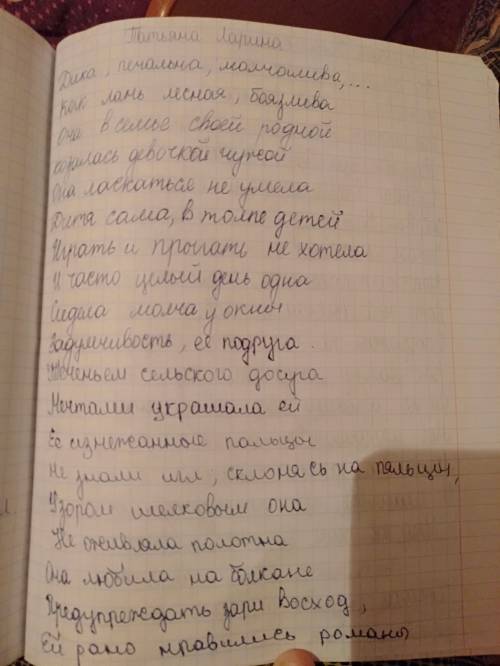 Татьяна Ларина
Дика, печальна, молчалива,...
Как лань лесная, боязлива
Она в семье своей родной
казалась девочкой чужой
Она ласкаться не умела
Дитя сама, в толпе детей
Играть и прыгать не хотела
И часто целый день одна
Сидела молча у окны
Задумчивость, её подруга.
Теченьем сельского досуга
Мечтами украшала ей
Её изнежанные пальцы
Не знали игл, склонясь на пяльцы,
Узором шелковым она
Не оживляла полотна
Она любила на балкане
Предупреждать зари восход,
Ей рано нравились романы